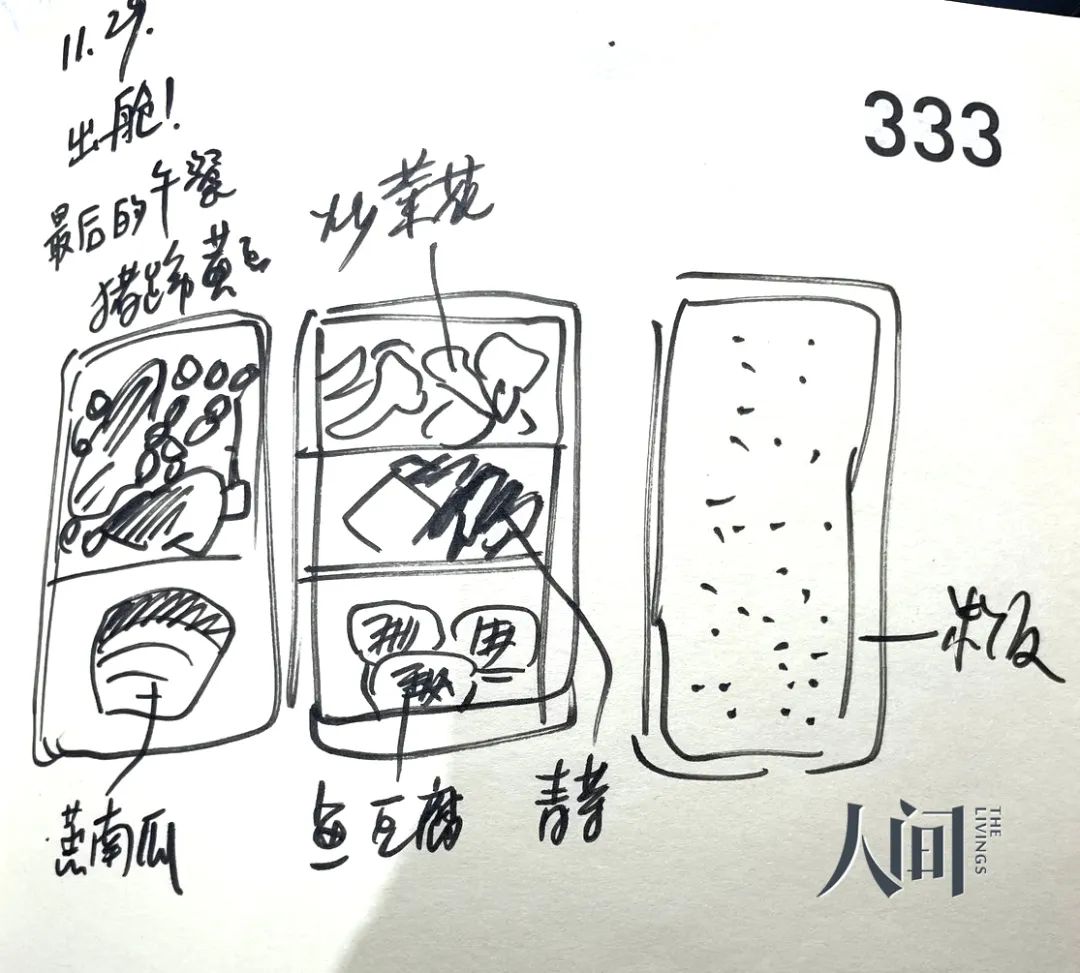 11.29.
出舱!
最后的午餐
猪蹄黄豆
333
炒菜花
米饭
蒸南瓜
鱼豆腐
青菜
人间
THE LIVINGS